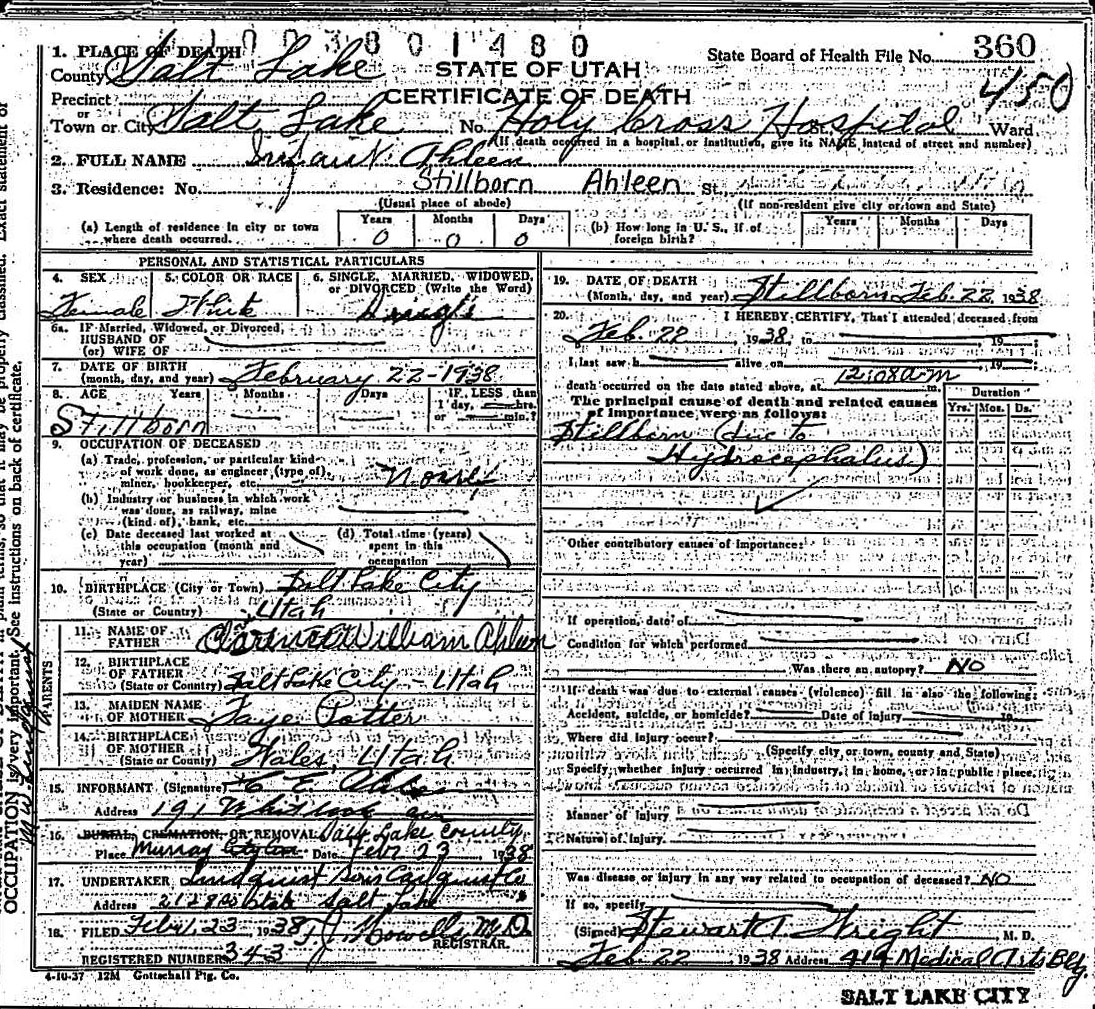 1003801480
1. PLACE OF DEATH
County Salt Lake
STATE OF UTAH
State Board of Health File No. 360
450
Precinct
CERTIFICATE OF DEATH
or
Town or City Salt Lake No. Holy Cross Hospital St. Ward
(If death occurred in a hospital or institution, give its NAME instead of street and number)
2. FULL NAME Infant Ahleen
3. Residence: No. Stillborn Ahleen St.
(Usual place of abode) (If non-resident give city or town and State)
(a) Length of residence in city or town where death occurred. Years 0 Months 0 Days 0
(b) How long in U. S., if of foreign birth? Years Months Days
PERSONAL AND STATISTICAL PARTICULARS
4. SEX 5. COLOR OR RACE 6. SINGLE, MARRIED, WIDOWED, or DIVORCED (Write the Word)
Female White Single
6a. IF Married, Widowed, or Divorced,
HUSBAND OF
(or) WIFE OF
7. DATE OF BIRTH
(month, day, and year) February 22-1938
8. AGE Years Months Days IF LESS than
1 day, hrs.
or min.?
Stillborn
9. OCCUPATION OF DECEASED
(a) Trade, profession, or particular kind
of work done, as engineer (type of),
miner, bookkeeper, etc.
(b) Industry or business in which work
was done, as railway, mine
(kind of), bank, etc.
(c) Date deceased last worked at
this occupation (month and
year)
(d) Total time (years)
spent in this
occupation
10. BIRTHPLACE (City or Town) Salt Lake City
(State or Country) Utah
PARENTS
11. NAME OF
FATHER Clarence William Ahleen
12. BIRTHPLACE
OF FATHER
(State or Country) Salt Lake City - Utah
13. MAIDEN NAME
OF MOTHER Faye Potter
14. BIRTHPLACE
OF MOTHER
(State or County) Wales, Utah
15. INFORMANT (Signature) C E
Address 191 Whitlock
16. BURIAL, CREMATION, OR REMOVAL Salt Lake County
Place Murray City Date Feb. 23 1938
17. UNDERTAKER Lindquist Sons
Address State Salt Lake
18. FILED Feb. 23, 1938 T. J. Howells, M.D.
REGISTRAR.
REGISTERED NUMBER 343
19. DATE OF DEATH
(Month, day, and year) Stillborn Feb. 22 1938
20. I HEREBY CERTIFY, That I attended deceased from
Feb. 22 1938, to 19
I last saw h alive on 19
death occurred on the date stated above, at 12:08 a-m m.
The principal cause of death and related causes
of importance were as follows:
Duration
Yrs. Mos. Ds.
Stillborn (due to
Hydrocephalus)
Other contributory causes of importance:
If operation, date of
Condition for which performed
Was there an autopsy? NO
If death was due to external causes (violence) fill in also the following:
Accident, suicide, or homicide? Date of Injury 19
Where did injury occur?
(Specify city or town, county and State)
Specify whether injury occurred in industry, in home, or in public place,
Manner of Injury
Nature of Injury
Was disease or injury in any way related to occupation of deceased? NO
If so, specify
(Signed) Stewart A. Wright, M. D.
Feb. 22 1938 Address 414 Medical Arts Blg.
4-10-37 12M Gottschall Ptg. Co.
SALT LAKE CITY
OCCUPATION is very important. See instructions on back of certificate.
so that it may be properly classified. Exact statement of